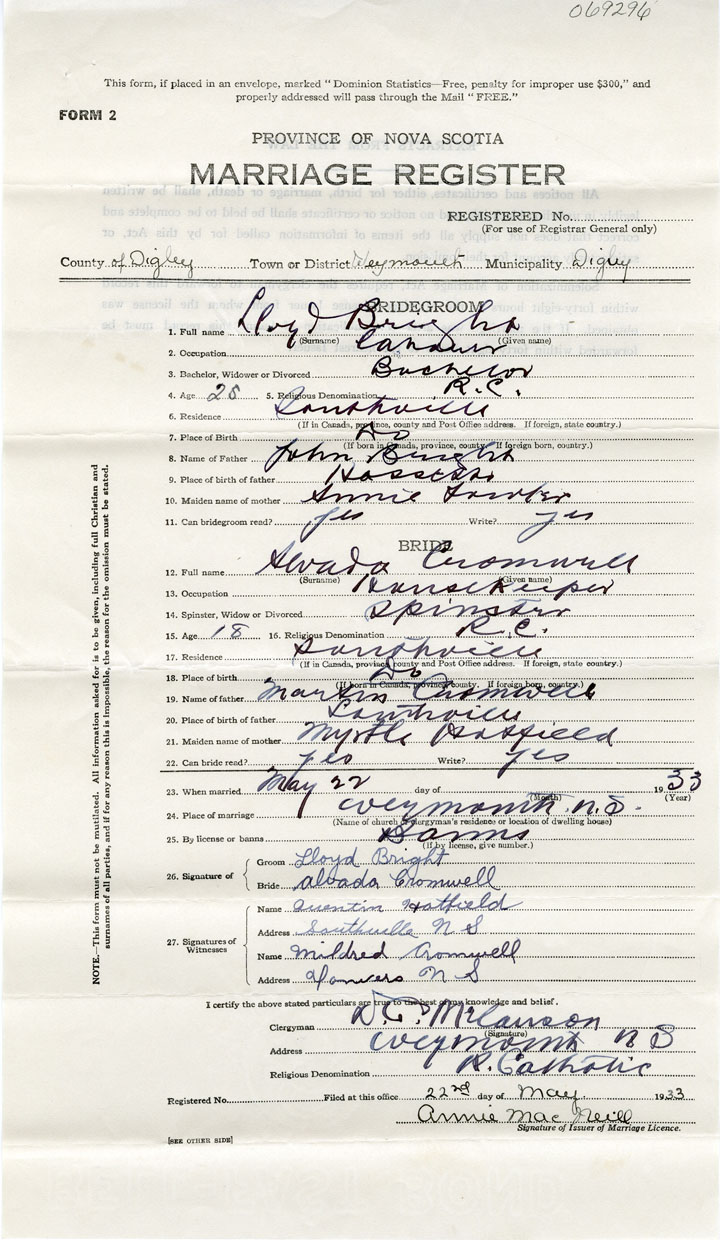 069296
This form, if placed in an envelope, marked "Dominion Statistics—Free, penalty for improper use $300," and
properly addressed will pass through the Mail "FREE."
FORM 2
PROVINCE OF NOVA SCOTIA
MARRIAGE REGISTER
REGISTERED No.
(For use of Registrar General only)
County of Digby Town or District Weymouth Municipality Digby
BRIDEGROOM
1. Full name Lloyd Bright
(Surname) (Given name)
2. Occupation Labourer
3. Bachelor, Widower or Divorced Bachelor
4. Age 25 5. Religious Denomination R.C.
6. Residence Southville
(If in Canada, province, county and Post Office address. If foreign, state country.)
7. Place of Birth Do
(If born in Canada, province, county. If foreign born, country.)
8. Name of Father John Bright
9. Place of birth of father Hassetts
10. Maiden name of mother Annie
11. Can bridegroom read? yes Write? yes
BRIDE
12. Full name Alvada Cromwell
(Surname) (Given name)
13. Occupation Housekeeper
14. Spinster, Widow or Divorced Spinster
15. Age 18 16. Religious Denomination R.C.
17. Residence Southville
(If in Canada, province, county and Post Office address. If foreign, state country.)
18. Place of birth Do
(If born in Canada, province, county. If foreign born, country.)
19. Name of father Martin Cromwell
20. Place of birth of father Southville
21. Maiden name of mother Myrtle Hatfield
22. Can bride read? yes Write? yes
23. When married May 22 day of 1933
(Month) (Year)
24. Place of marriage Weymouth N.S.
(Name of church or clergyman's residence or location of dwelling house)
25. By license or banns Banns
(If by license, give number.)
26. Signature of
Groom Lloyd Bright
Bride Alvada Cromwell
27. Signatures of Witnesses
Name Quentin Hatfield
Address Southville N S
Name Mildred Cromwell
Address Danvers N S
I certify the above stated particulars are true to the best of my knowledge and belief.
Clergyman
(Signature)
Address Weymouth N S
Religious Denomination R. Catholic
Registered No. Filed at this office 22nd day of May 1933
Annie Mac Neill
Signature of Issuer of Marriage Licence.
[SEE OTHER SIDE]
NOTE.—This form must not be mutilated. All information asked for is to be given, including full Christian and
surnames of all parties, and if for any reason this is impossible, the reason for the omission must be stated.